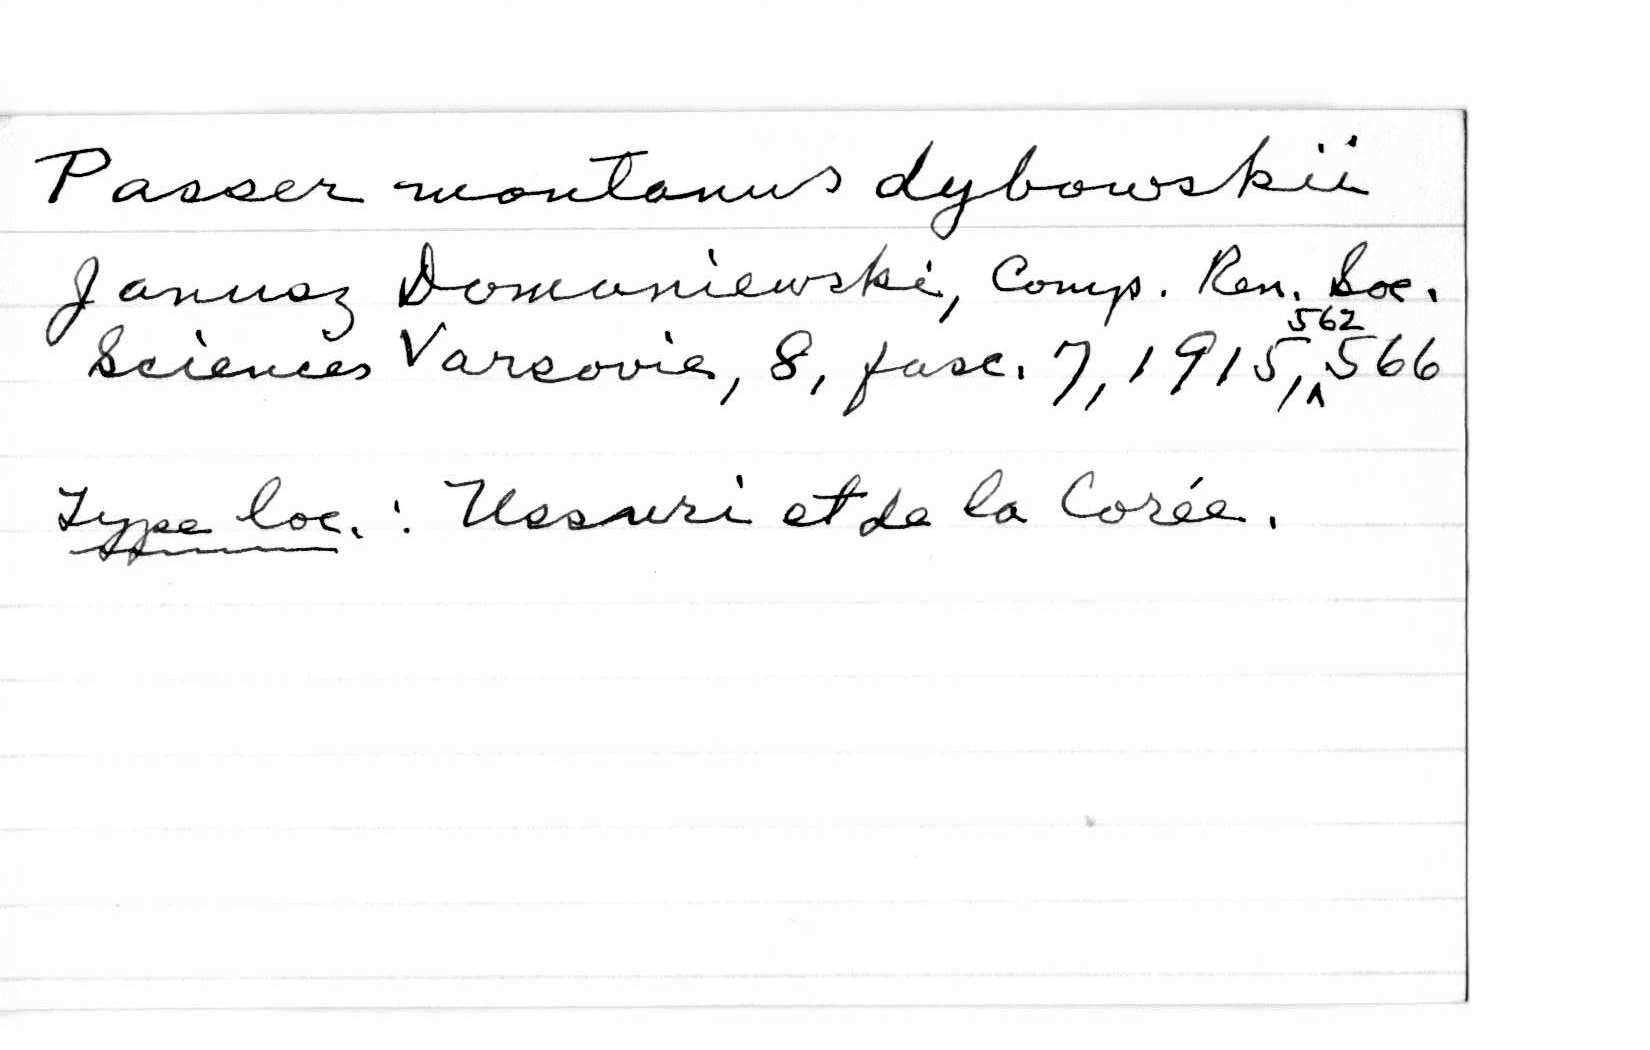 Passer montanus dybowskii
Janusz Domaniewski, Comp. Ren. Soc.
Sciences Varsovie, 8, fasc. 7, 1915, ^562 566
Type loc.: Ussuri et de la Corée.